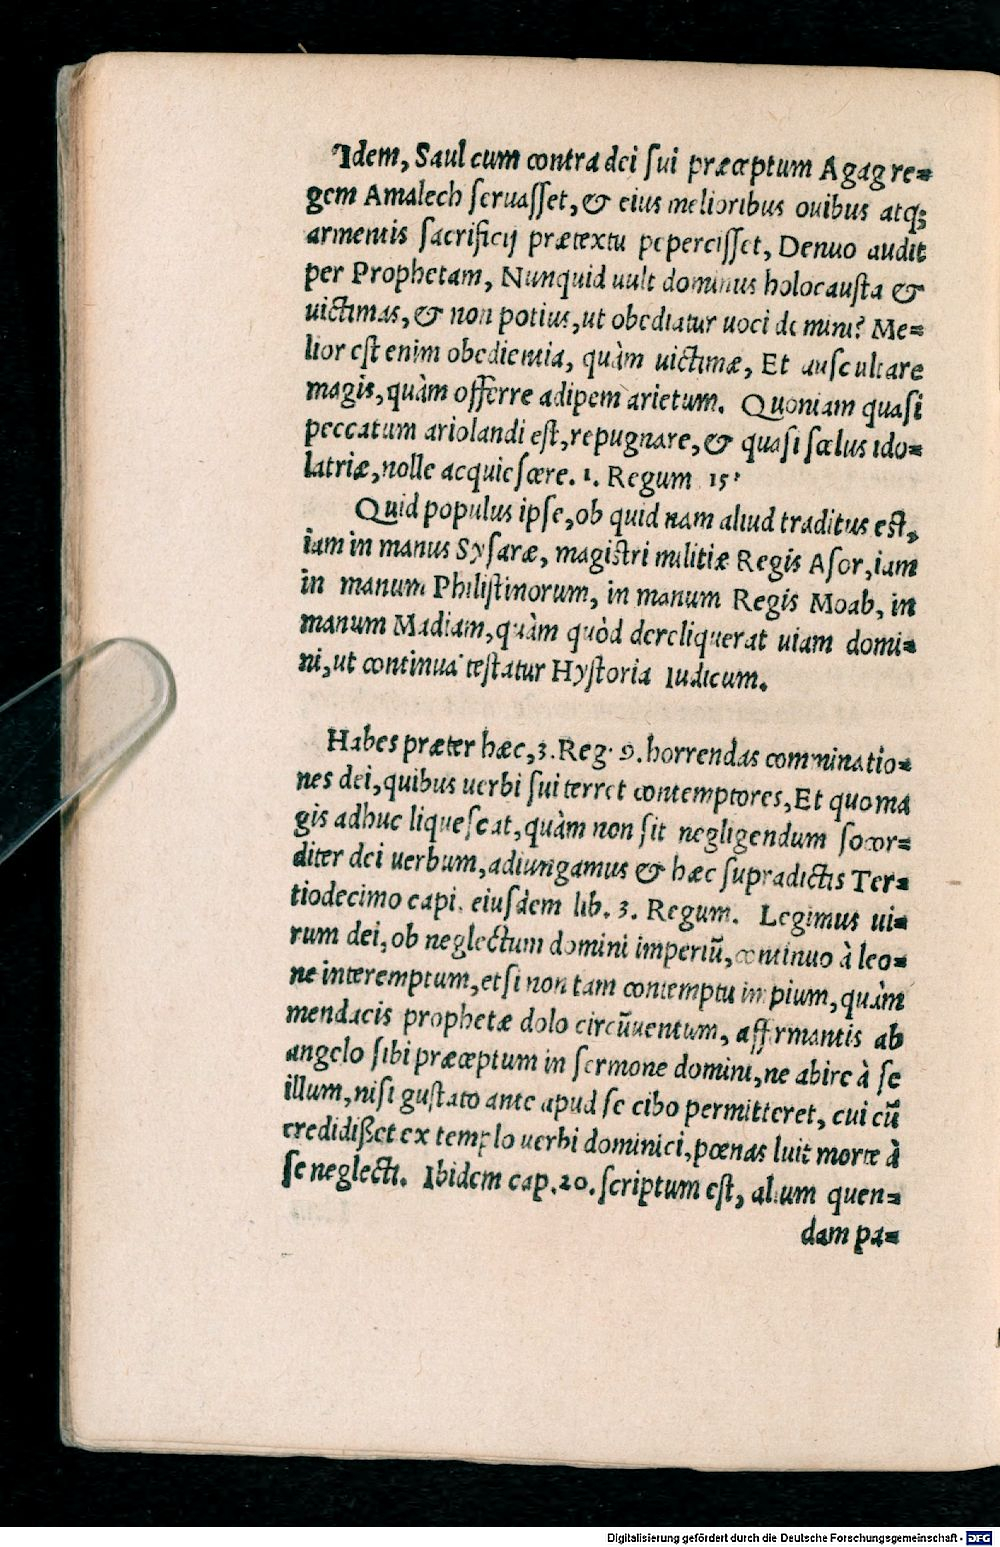 Idem, Saul cum contra dei sui præceptum Agag re=
gem Amalech seruasset, & eius melioribus ouibus atq;
armentis sacrificij prætextu pepercisset, Denuo audit
per Prophetam, Nunquid uult dominus holocausta &
uictimas, & non potius, ut obediatur uoci domini? Me=
lior est enim obedientia, quàm uictimæ, Et auscultare
magis, quàm offerre adipem arietum. Quoniam quasi
peccatum ariolandi est, repugnare, & quasi scelus ido=
latriæ, nolle acquiescere. 1. Regum 15.
Quid populus ipse, ob quid nam aliud traditus est,
iam in manus Sysaræ, magistri militiæ Regis Asor, iam
in manum Philistinorum, in manum Regis Moab, in
manum Madiam, quàm quòd dereliquerat uiam domi=
ni, ut continua testatur Hystoria Iudicum.
Habes præter hæc, 3. Reg. 9. horrendas comminatio=
nes dei, quibus uerbi sui terret contemptores, Et quo ma
gis adhuc liquescat, quàm non sit negligendum socor=
diter dei uerbum, adiungamus & hæc supradictis Ter=
tiodecimo capi. eiusdem lib. 3. Regum. Legimus ui=
rum dei, ob neglectum domini imperiũ, continuo à leo=
ne interemptum, etsi non tam contemptu impium, quàm
mendacis prophetæ dolo circũuentum, affirmantis ab
angelo sibi præceptum in sermone domini, ne abire à se
illum, nisi gustato ante apud se cibo permitteret, cui cũ
credidißet ex templo uerbi dominici, pœnas luit morte à
se neglecti. Ibidem cap. 20. scriptum est, alium quen=
dam pa=
Digitalisierung gefördert durch die Deutsche Forschungsgemeinschaft - DFG